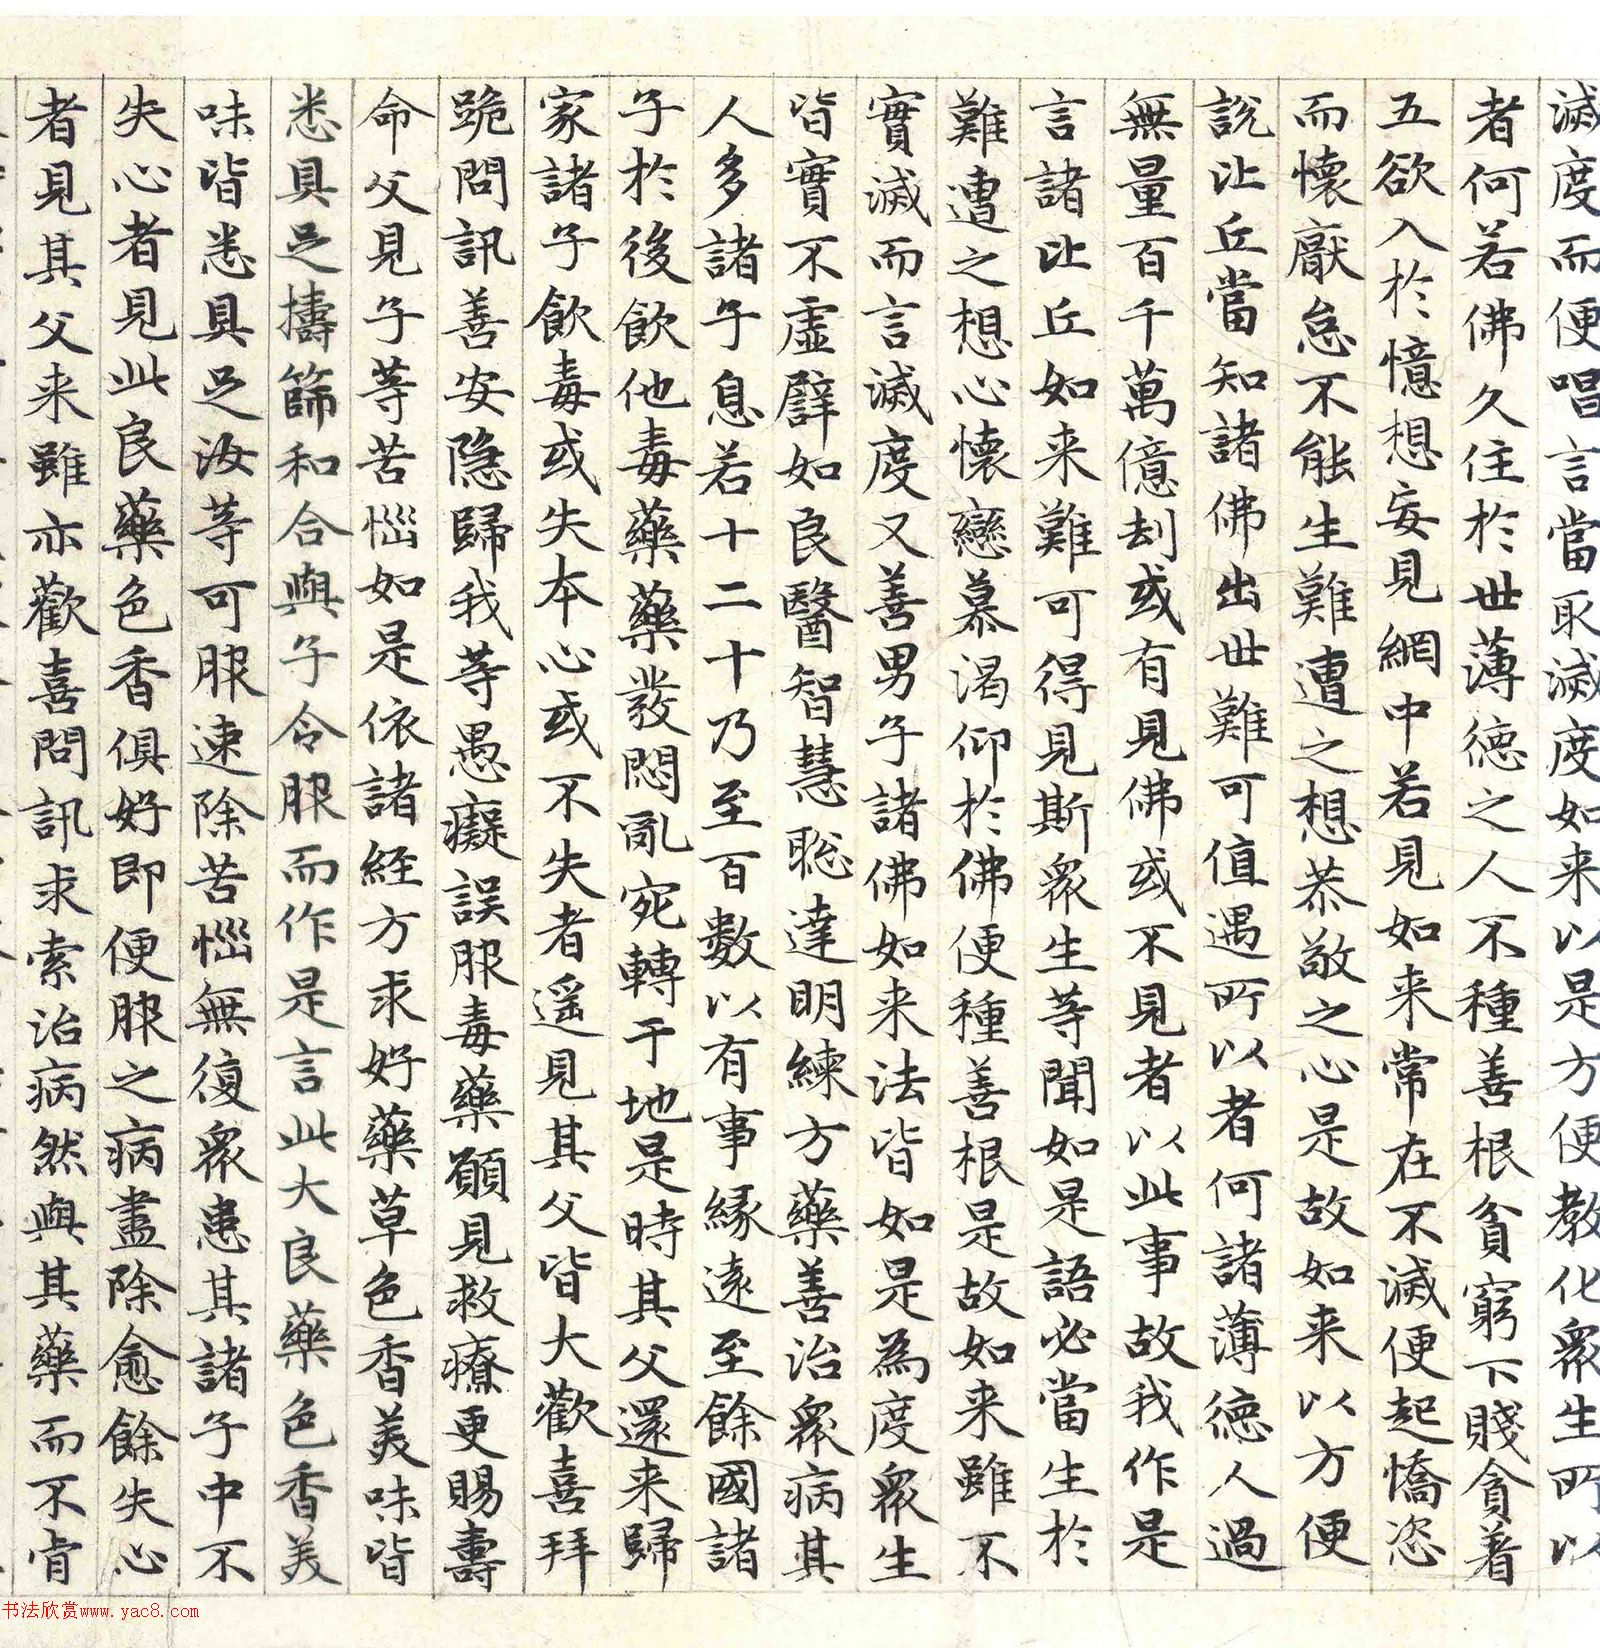 滅度而便唱言當取滅度如来以是方便教化衆生所以
者何若佛久住於世薄德之人不種善根貧窮下賤貪着
五欲入於憶想妄見網中若見如来常在不滅便起憍恣
而懷厭怠不能生難遭之想恭敬之心是故如来以方便
說比丘當知諸佛出世難可值遇所以者何諸薄德人過
無量百千萬億劫或有見佛或不見者以此事故我作是
言諸比丘如来難可得見斯衆生等聞如是語必當生於
難遭之想心懷戀慕渴仰於佛便種善根是故如来雖不
實滅而言滅度又善男子諸佛如来法皆如是為度衆生
皆實不虛譬如良醫智慧聡達明練方藥善治衆病其
人多諸子息若十二十乃至百數以有事緣遠至餘國諸
子於後飲他毒藥藥發悶亂宛轉于地是時其父還来歸
家諸子飲毒或失本心或不失者遥見其父皆大歡喜拜
跪問訊善安隐歸我等愚癡誤服毒藥願見救療更賜壽
命父見子等苦惱如是依諸経方求好藥草色香美味皆
悉具足擣篩和合與子令服而作是言此大良藥色香美
味皆悉具足汝等可服速除苦惱無復衆患其諸子中不
失心者見此良藥色香俱好即便服之病盡除愈餘失心
者見其父来雖亦歡喜問訊求索治病然與其藥而不肯
书法欣赏www.yac8.com